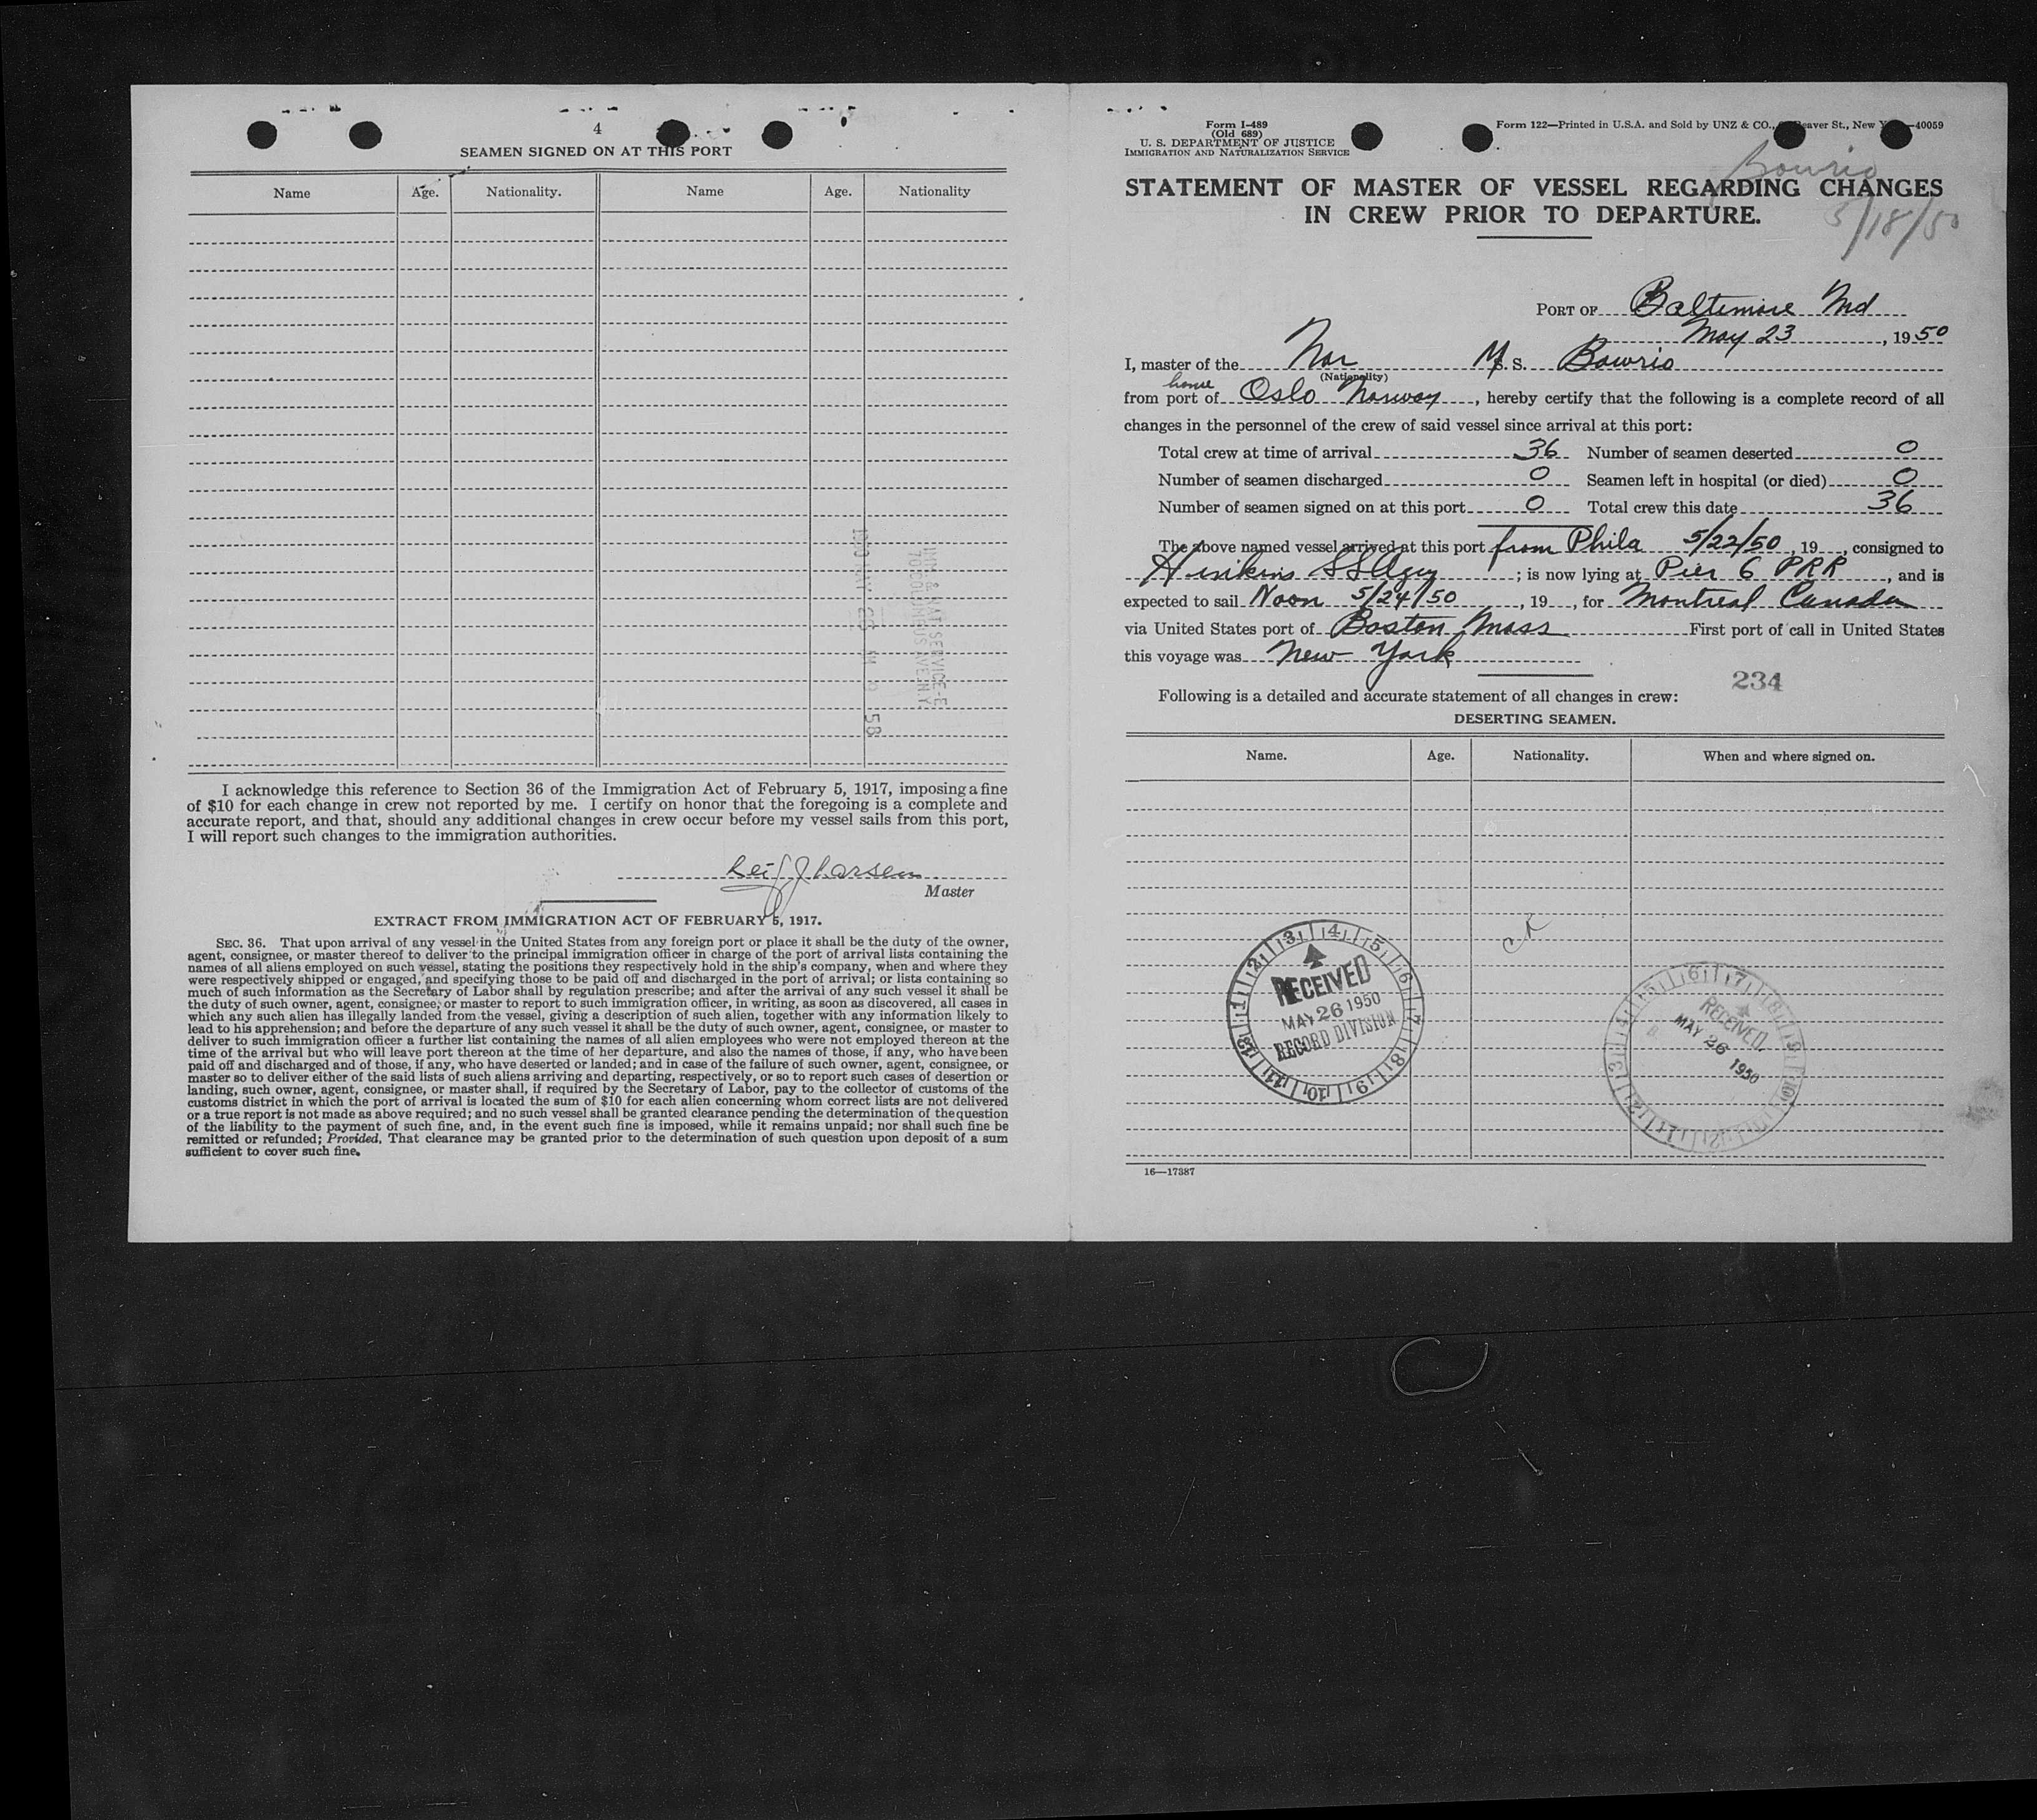 4
SEAMEN SIGNED ON AT THIS PORT
Name Age. Nationality. Name Age. Nationality
IMM & NAT SERVICE-E
70 COLUMBUS AVE N.Y.
1950 MAY 26 AM 9 58
I acknowledge this reference to Section 36 of the Immigration Act of February 5, 1917, imposing a fine
of $10 for each change in crew not reported by me. I certify on honor that the foregoing is a complete and
accurate report, and that, should any additional changes in crew occur before my vessel sails from this port,
I will report such changes to the immigration authorities.
Leif J Larsen
Master
EXTRACT FROM IMMIGRATION ACT OF FEBRUARY 5, 1917.
SEC. 36. That upon arrival of any vessel in the United States from any foreign port or place it shall be the duty of the owner,
agent, consignee, or master thereof to deliver to the principal immigration officer in charge of the port of arrival lists containing the
names of all aliens employed on such vessel, stating the positions they respectively hold in the ship's company, when and where they
were respectively shipped or engaged, and specifying those to be paid off and discharged in the port of arrival; or lists containing so
much of such information as the Secretary of Labor shall by regulation prescribe; and after the arrival of any such vessel it shall be
the duty of such owner, agent, consignee, or master to report to such immigration officer, in writing, as soon as discovered, all cases in
which any such alien has illegally landed from the vessel, giving a description of such alien, together with any information likely to
lead to his apprehension; and before the departure of any such vessel it shall be the duty of such owner, agent, consignee, or master to
deliver to such immigration officer a further list containing the names of all alien employees who were not employed thereon at the
time of the arrival but who will leave port thereon at the time of her departure, and also the names of those, if any, who have been
paid off and discharged and of those, if any, who have deserted or landed; and in case of the failure of such owner, agent, consignee, or
master so to deliver either of the said lists of such aliens arriving and departing, respectively, or so to report such cases of desertion or
landing, such owner, agent, consignee, or master shall, if required by the Secretary of Labor, pay to the collector of customs of the
customs district in which the port of arrival is located the sum of $10 for each alien concerning whom correct lists are not delivered
or a true report is not made as above required; and no such vessel shall be granted clearance pending the determination of the question
of the liability to the payment of such fine, and, in the event such fine is imposed, while it remains unpaid; nor shall such fine be
remitted or refunded; Provided, That clearance may be granted prior to the determination of such question upon deposit of a sum
sufficient to cover such fine.
Form I-489
(Old 689)
U. S. DEPARTMENT OF JUSTICE
IMMIGRATION AND NATURALIZATION SERVICE
Form 122—Printed in U.S.A. and Sold by UNZ & CO., Beaver St., New —40059
Bowrio
5/18/50
STATEMENT OF MASTER OF VESSEL REGARDING CHANGES
IN CREW PRIOR TO DEPARTURE.
PORT OF Baltimore Md
May 23, 1950
I, master of the Nor M S. Bowrio
(Nationality)
home
from port of Oslo Norway, hereby certify that the following is a complete record of all
changes in the personnel of the crew of said vessel since arrival at this port:
Total crew at time of arrival 36 Number of seamen deserted 0
Number of seamen discharged 0 Seamen left in hospital (or died) 0
Number of seamen signed on at this port 0 Total crew this date 36
The above named vessel arrived at this port from Phila 5/22/50, 19 , consigned to
SS Agcy ; is now lying at Pier 6 PRR, and is
expected to sail Noon 5/24/50, 19 , for Montreal Canada
via United States port of Boston Mass First port of call in United States
this voyage was New York
234
Following is a detailed and accurate statement of all changes in crew:
DESERTING SEAMEN.
Name. Age. Nationality. When and where signed on.
RECEIVED
MAY 26 1950
RECORD DIVISION
RECEIVED
MAY 26 1950
16—17387